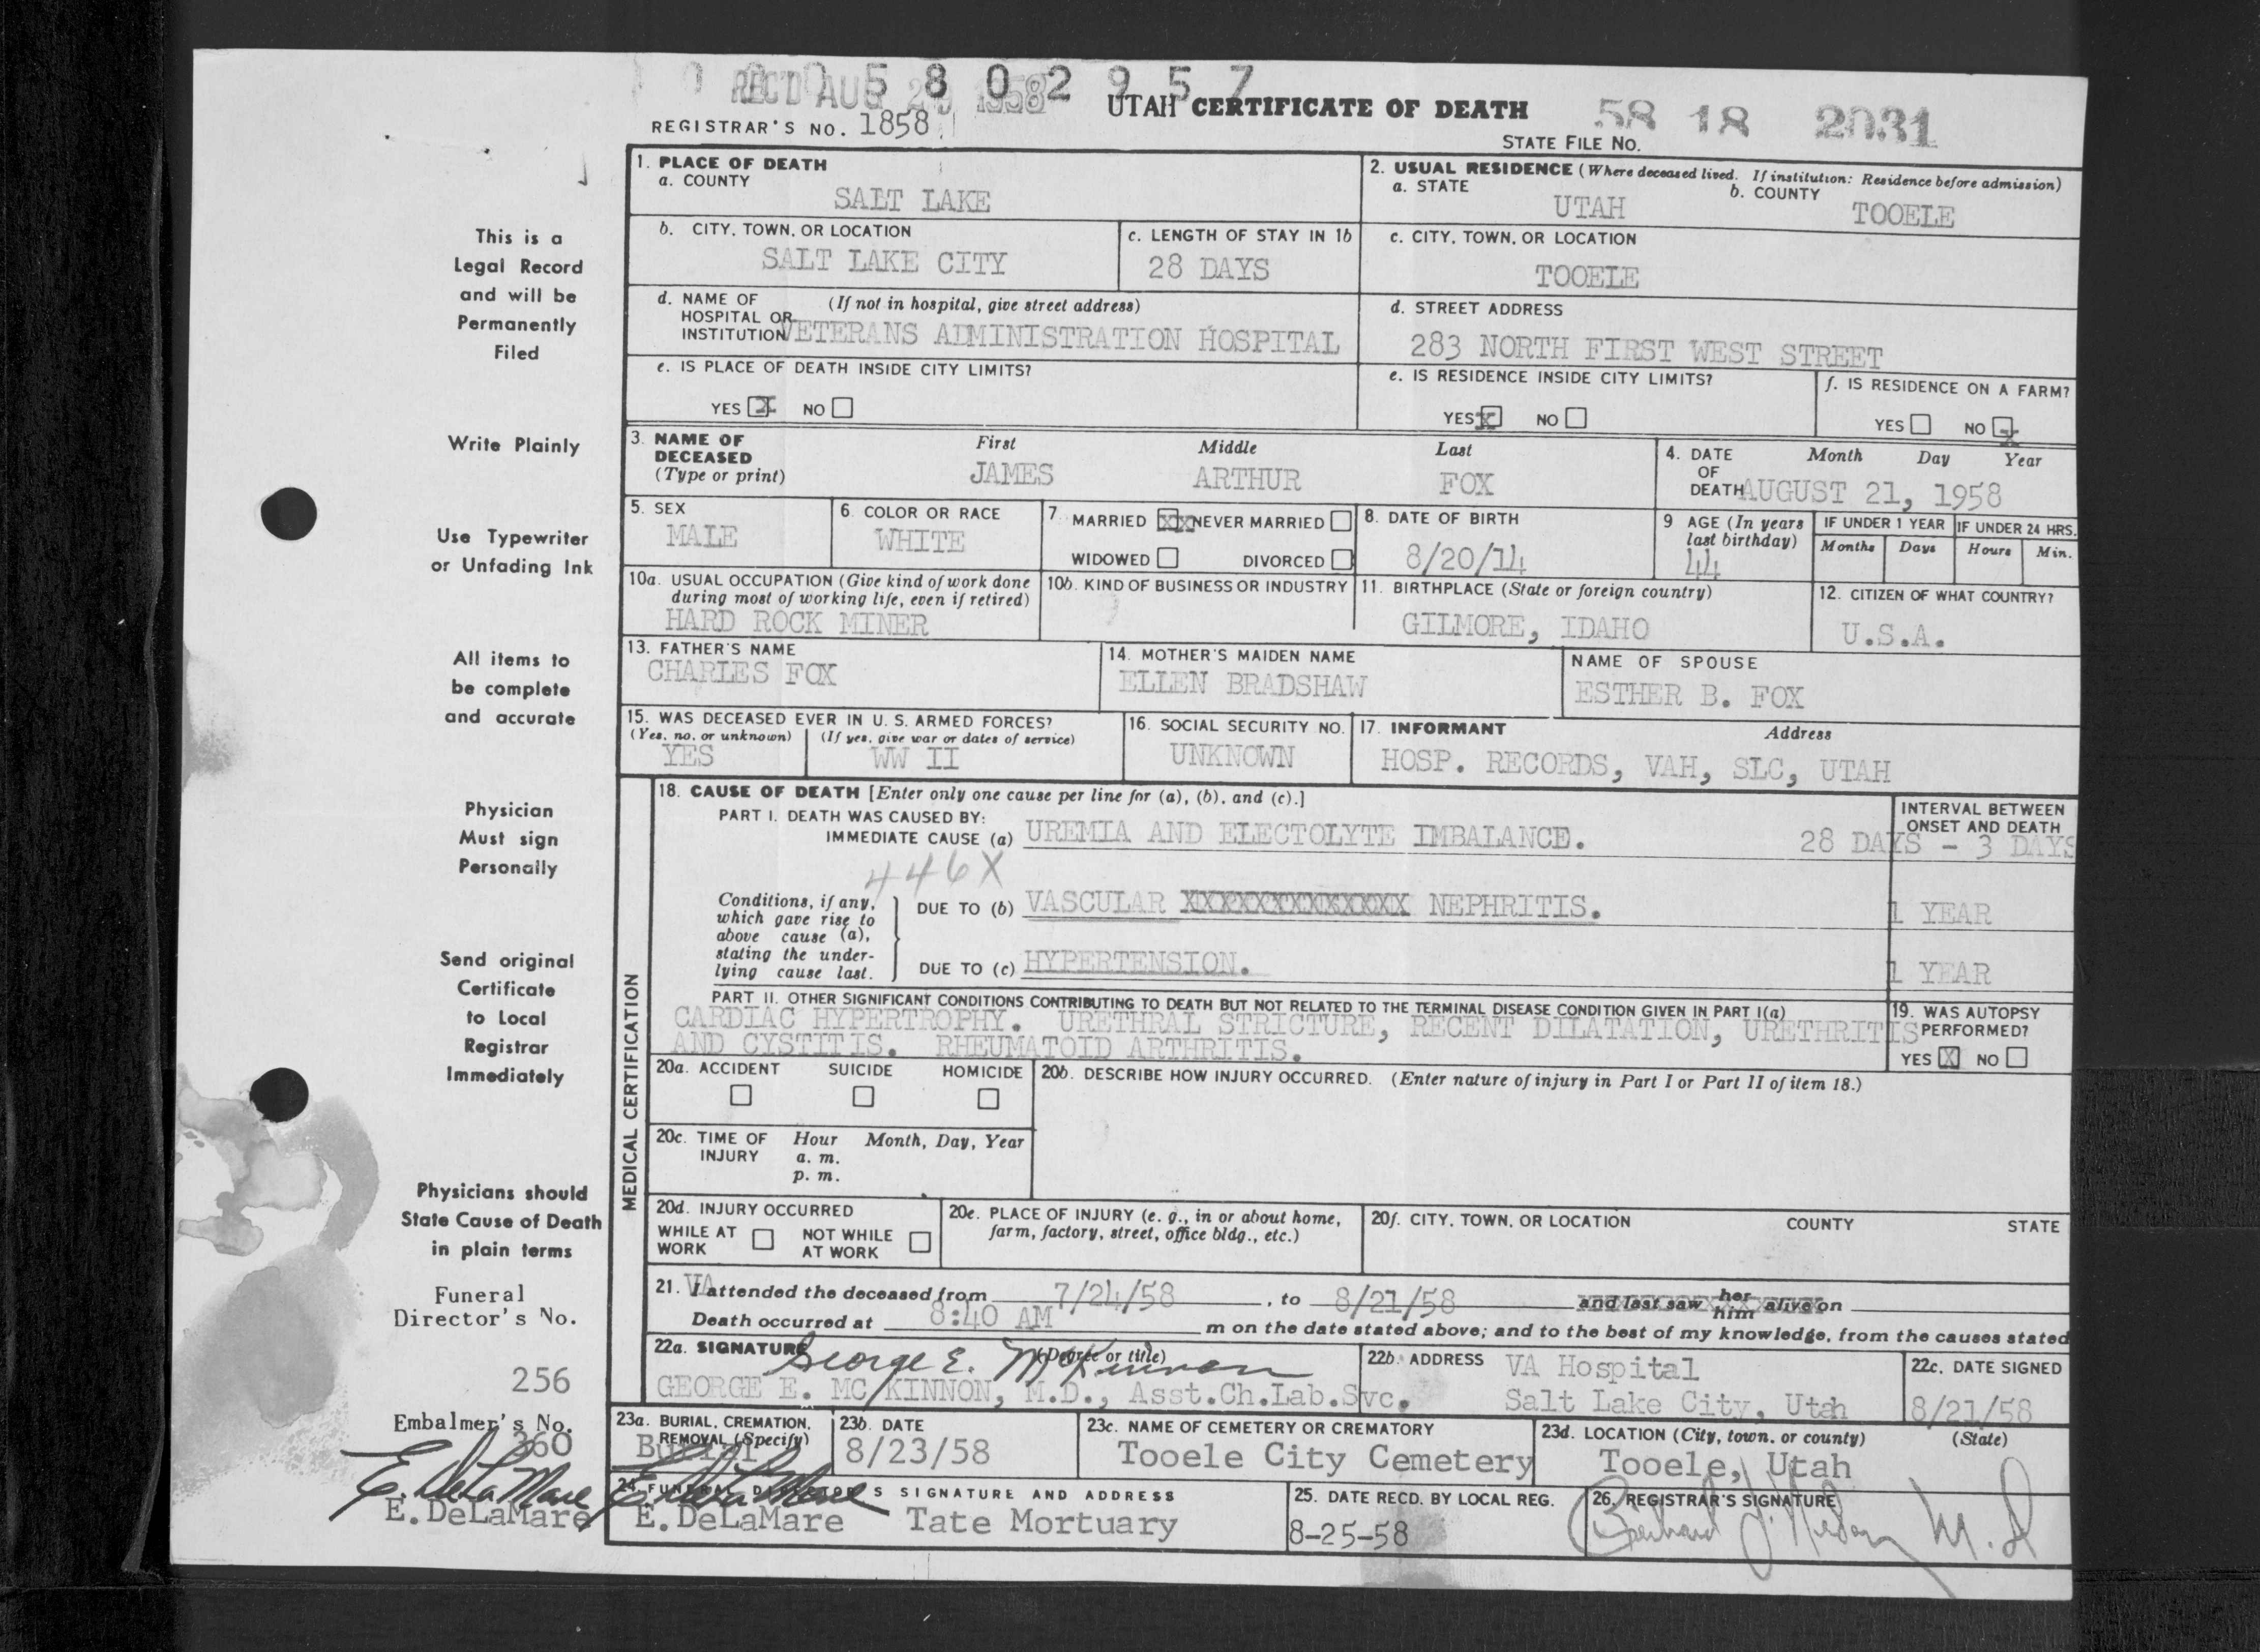 0 0 0 5 8 0 2 9 5 7
REC'D AUG 1958
UTAH CERTIFICATE OF DEATH
58 18 2031
REGISTRAR'S NO. 1858
STATE FILE NO.
1. PLACE OF DEATH
a. COUNTY
SALT LAKE
2. USUAL RESIDENCE (Where deceased lived. If institution: Residence before admission)
a. STATE
UTAH
b. COUNTY
TOOELE
b. CITY, TOWN, OR LOCATION
SALT LAKE CITY
c. LENGTH OF STAY IN 1b
28 DAYS
c. CITY, TOWN, OR LOCATION
TOOELE
d. NAME OF HOSPITAL OR INSTITUTION
(If not in hospital, give street address)
VETERANS ADMINISTRATION HOSPITAL
d. STREET ADDRESS
283 NORTH FIRST WEST STREET
e. IS PLACE OF DEATH INSIDE CITY LIMITS?
YES X NO
e. IS RESIDENCE INSIDE CITY LIMITS?
YES X NO
f. IS RESIDENCE ON A FARM?
YES NO X
3. NAME OF DECEASED
(Type or print)
First
JAMES
Middle
ARTHUR
Last
FOX
4. DATE OF DEATH
Month Day Year
AUGUST 21, 1958
5. SEX
MALE
6. COLOR OR RACE
WHITE
7. MARRIED XX NEVER MARRIED
WIDOWED DIVORCED
8. DATE OF BIRTH
8/20/14
9 AGE (In years last birthday)
44
IF UNDER 1 YEAR
Months Days
IF UNDER 24 HRS.
Hours Min.
10a. USUAL OCCUPATION (Give kind of work done during most of working life, even if retired)
HARD ROCK MINER
10b. KIND OF BUSINESS OR INDUSTRY
11. BIRTHPLACE (State or foreign country)
GILMORE, IDAHO
12. CITIZEN OF WHAT COUNTRY?
U.S.A.
13. FATHER'S NAME
CHARLES FOX
14. MOTHER'S MAIDEN NAME
ELLEN BRADSHAW
NAME OF SPOUSE
ESTHER B. FOX
15. WAS DECEASED EVER IN U. S. ARMED FORCES?
(Yes, no, or unknown)
YES
(If yes, give war or dates of service)
WW II
16. SOCIAL SECURITY NO.
UNKNOWN
17. INFORMANT
Address
HOSP. RECORDS, VAH, SLC, UTAH
MEDICAL CERTIFICATION
18. CAUSE OF DEATH [Enter only one cause per line for (a), (b), and (c).]
INTERVAL BETWEEN ONSET AND DEATH
PART I. DEATH WAS CAUSED BY:
IMMEDIATE CAUSE (a) UREMIA AND ELECTOLYTE IMBALANCE. 28 DAYS - 3 DAYS
446X
Conditions, if any, which gave rise to above cause (a), stating the underlying cause last.
DUE TO (b) VASCULAR XXXXXXXXXXXXXX NEPHRITIS. 1 YEAR
DUE TO (c) HYPERTENSION. 1 YEAR
PART II. OTHER SIGNIFICANT CONDITIONS CONTRIBUTING TO DEATH BUT NOT RELATED TO THE TERMINAL DISEASE CONDITION GIVEN IN PART I(a)
CARDIAC HYPERTROPHY. URETHRAL STRICTURE, RECENT DILATATION, URETHRITIS
AND CYSTITIS. RHEUMATOID ARTHRITIS.
19. WAS AUTOPSY PERFORMED?
YES X NO
20a. ACCIDENT SUICIDE HOMICIDE
20b. DESCRIBE HOW INJURY OCCURRED. (Enter nature of injury in Part I or Part II of item 18.)
20c. TIME OF INJURY
Hour Month, Day, Year
a. m.
p. m.
20d. INJURY OCCURRED
WHILE AT WORK NOT WHILE AT WORK
20e. PLACE OF INJURY (e. g., in or about home, farm, factory, street, office bldg., etc.)
20f. CITY, TOWN, OR LOCATION COUNTY STATE
21. VA attended the deceased from 7/24/58, to 8/21/58 and last saw her him alive on
Death occurred at 8:40 AM m on the date stated above; and to the best of my knowledge, from the causes stated
22a. SIGNATURE (Degree or title)
George E. McKinnon
GEORGE E. MC KINNON, M.D., Asst.Ch.Lab.Svc.
22b. ADDRESS
VA Hospital
Salt Lake City, Utah
22c. DATE SIGNED
8/21/58
23a. BURIAL, CREMATION, REMOVAL (Specify)
Burial
23b. DATE
8/23/58
23c. NAME OF CEMETERY OR CREMATORY
Tooele City Cemetery
23d. LOCATION (City, town, or county) (State)
Tooele, Utah
24. FUNERAL DIRECTOR'S SIGNATURE AND ADDRESS
E. DeLaMare
E. DeLaMare Tate Mortuary
25. DATE RECD. BY LOCAL REG.
8-25-58
26. REGISTRAR'S SIGNATURE
M.D
This is a
Legal Record
and will be
Permanently
Filed
Write Plainly
Use Typewriter
or Unfading Ink
All items to
be complete
and accurate
Physician
Must sign
Personally
Send original
Certificate
to Local
Registrar
Immediately
Physicians should
State Cause of Death
in plain terms
Funeral
Director's No.
256
Embalmer's No.
360
E. DeLaMare
E. DeLaMare